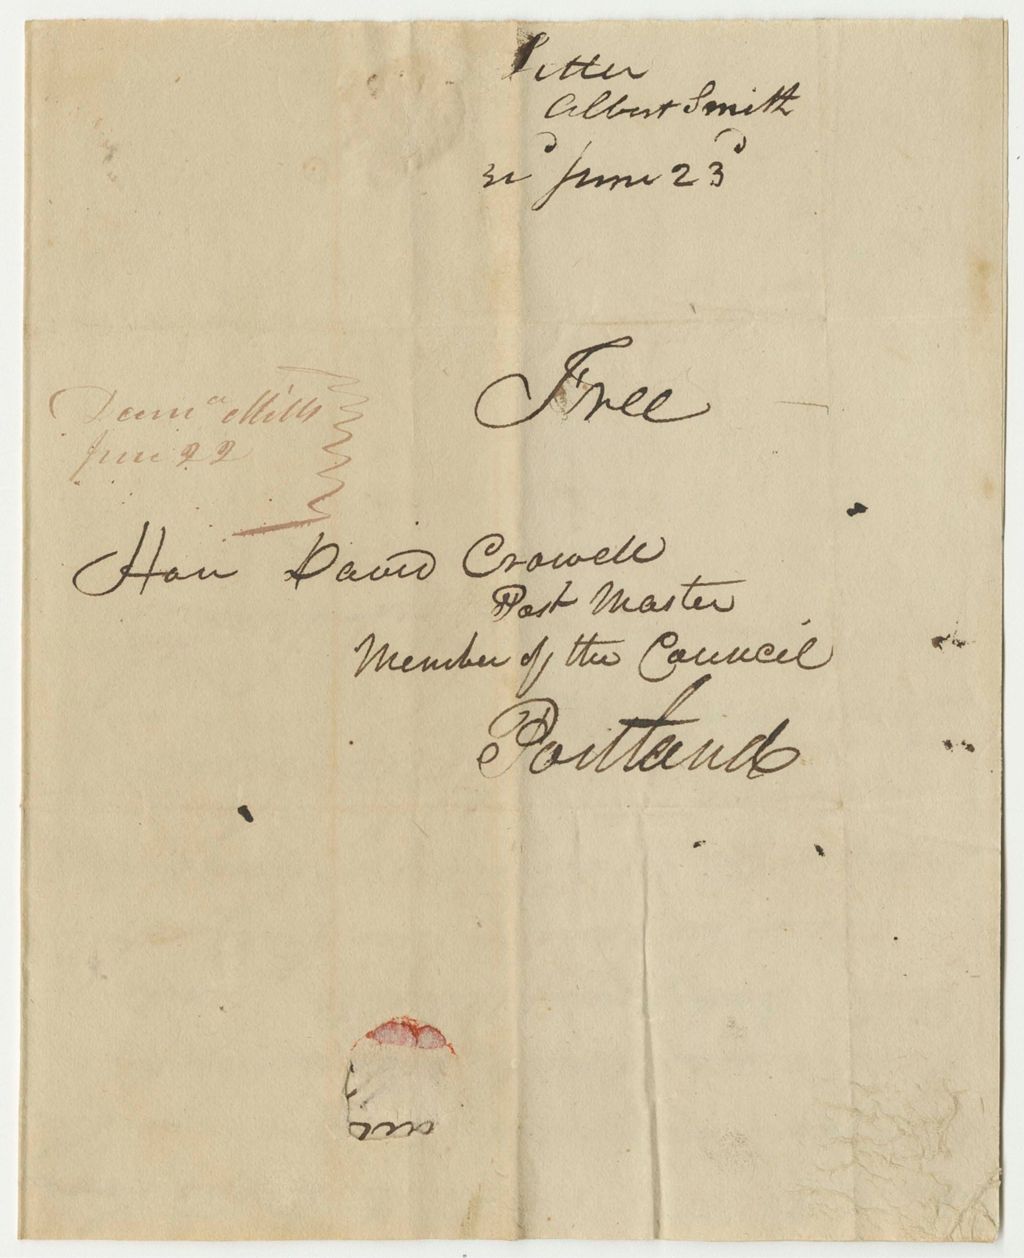 Letter
Albert Smith
June 23d
Free
Dama Mills
June 22
Hon David Crowell
Post Master
Member of the Council
Portland